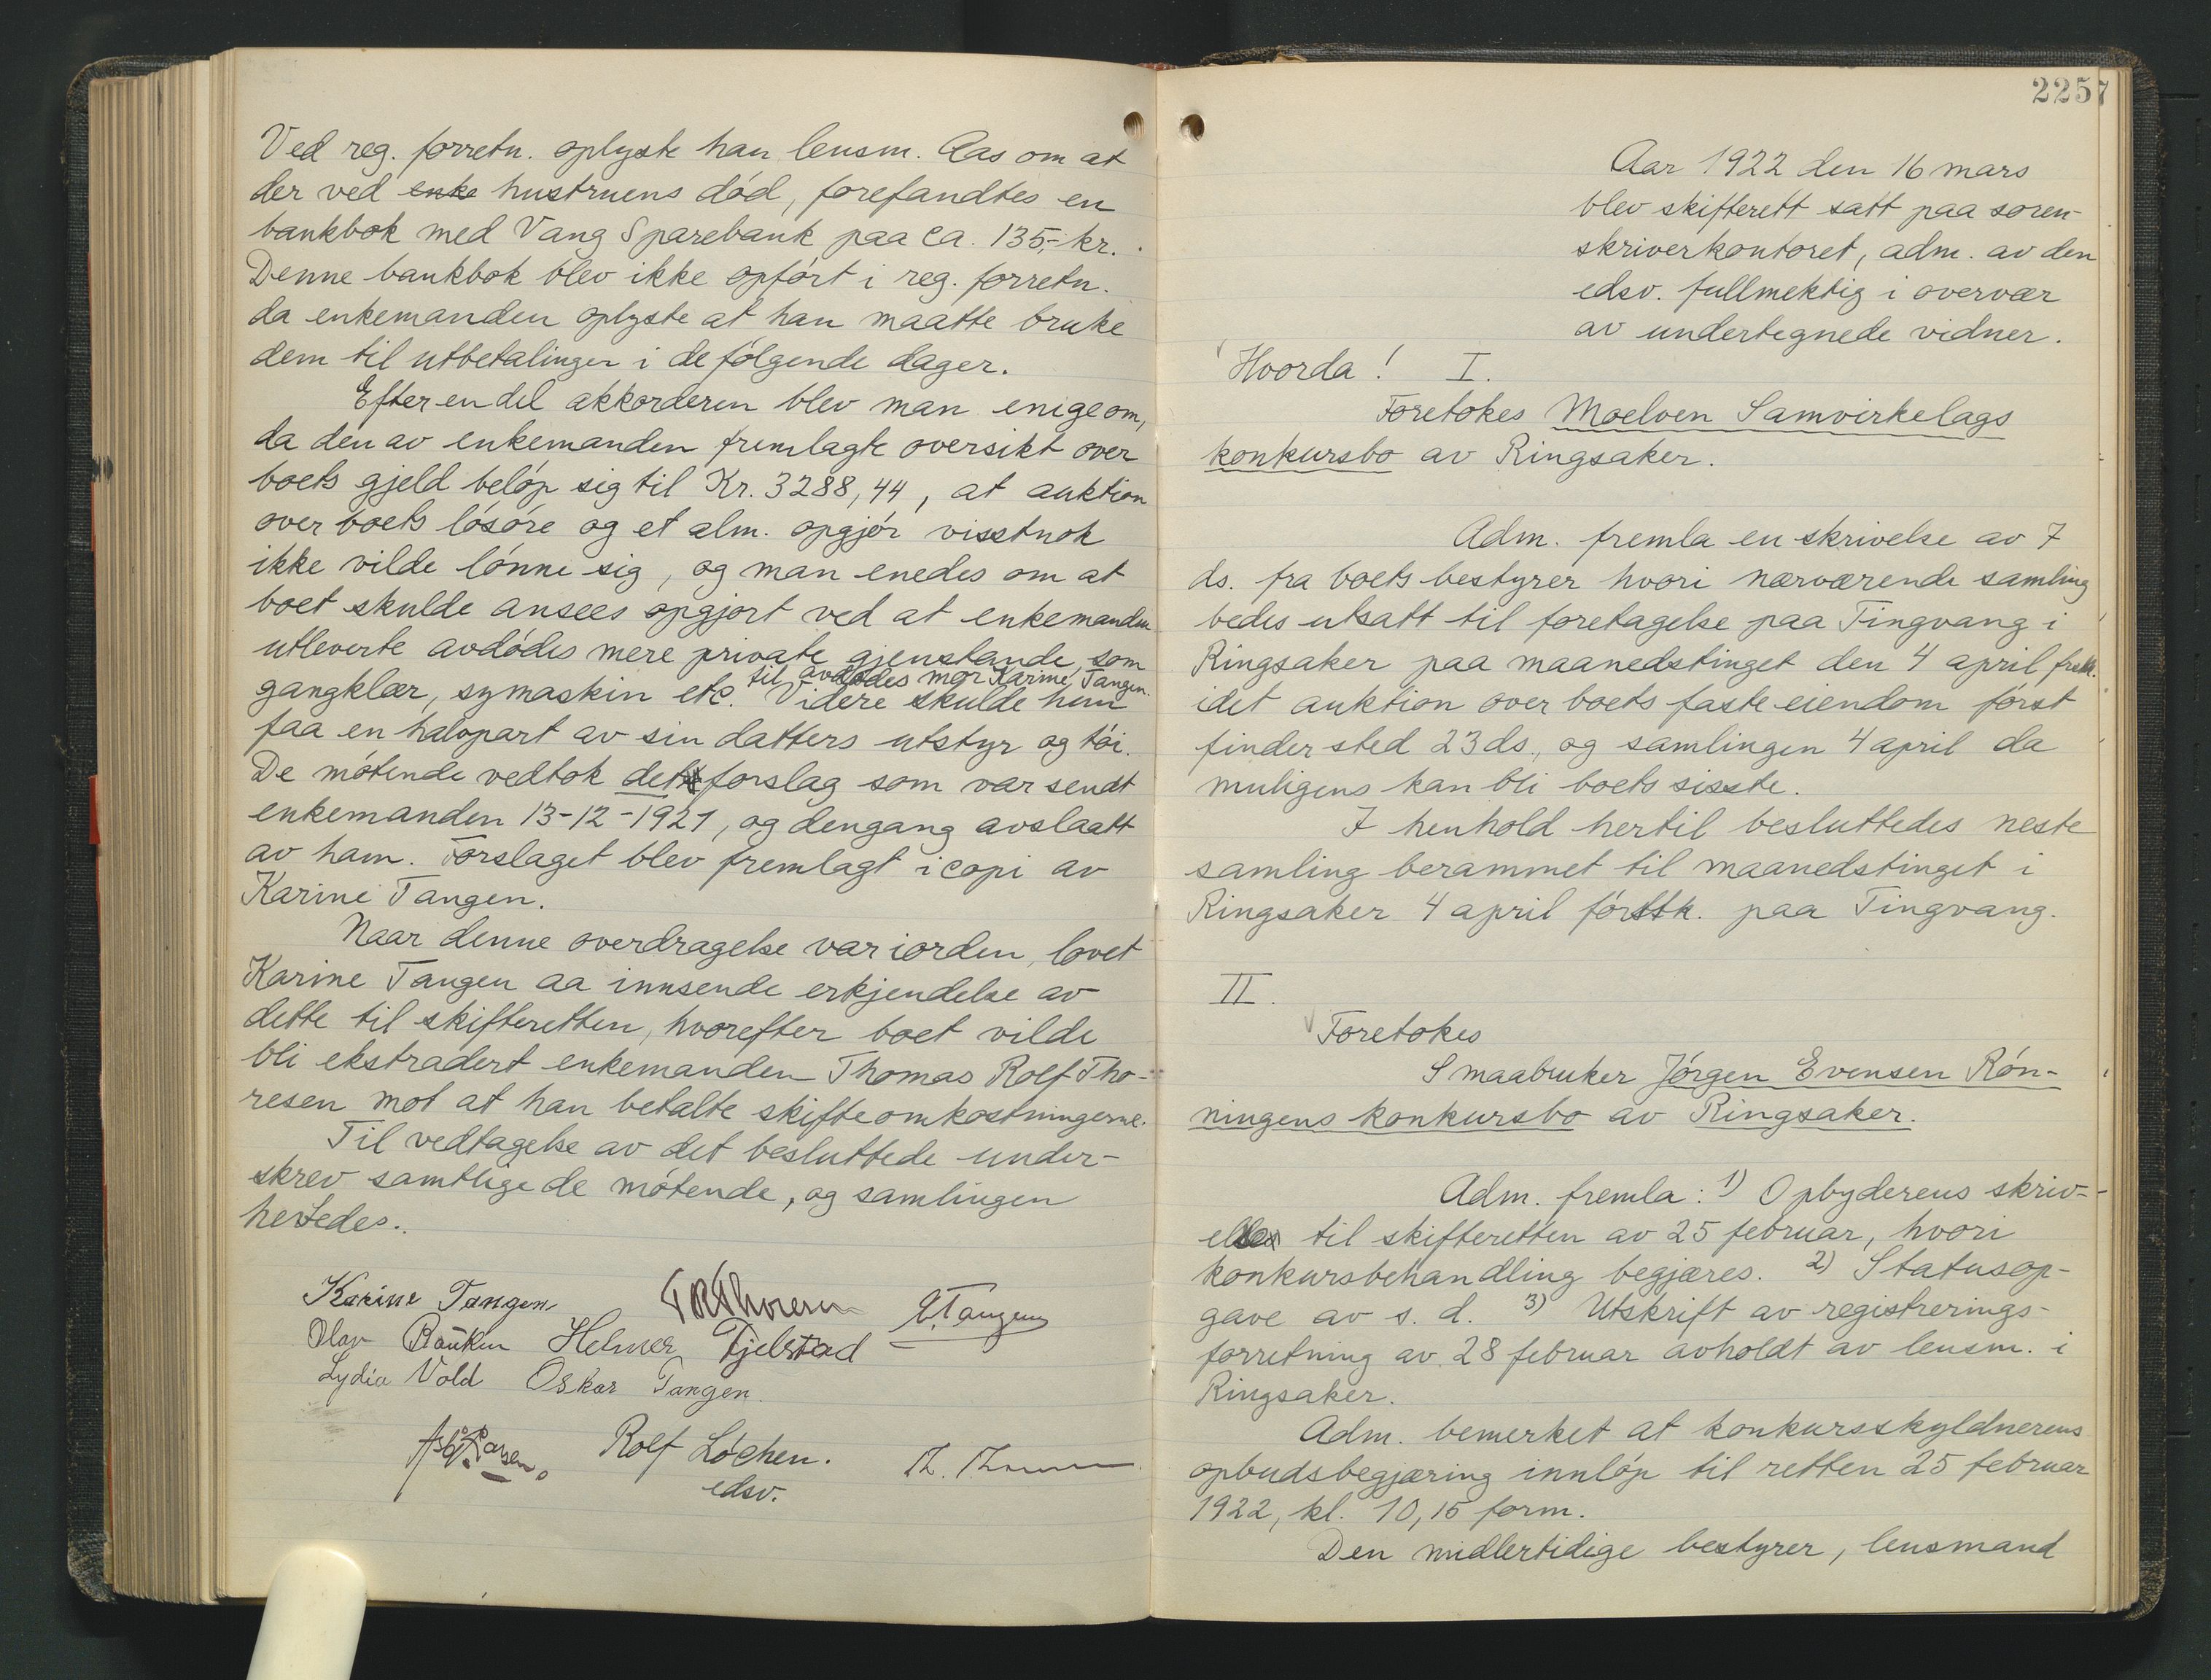 Ved reg. forretn. oplyste han lensm. Aas om at
der ved enke hustruens död, forefandtes en
bankbok med Vang Sparebank paa ca. 135,- kr.
Denne bankbok blev ikke opfört i reg. forretn.
da enkemanden oplyste at han maatte bruke
dem til utbetalinger i de fölgende dager.
Efter en del akkorderen blev man enige om,
da den av enkemanden fremlagte oversikt over
boets gjeld belöp sig til Kr. 3288,44, at auktion
over boets lösöre og et alm. opgjör visstnok
ikke vilde lönne sig, og man enedes om at
boet skulde ansees opgjort ved at enkemanden
utleverte avdödes mere private gjenstande, som
til avdödes mor Karine Tangen.
gangklær, symaskin etc. Videre skulde hun
faa en halvpart av sin datters utstyr og töi.
De mötende vedtok det forslag som var sendt
enkemanden 13-12-1921, og dengang avslaatt
av ham. Forslaget blev fremlagt i copi av
Karine Tangen.
Naar denne overdragelse var iorden, lovet
Karine Tangen aa innsende erkjendelse av
dette til skifteretten, hvorefter boet vilde
bli ekstradert enkemanden Thomas Rolf Tho-
resen mot at han betalte skifteomkostningerne.
Til vedtagelse av det besluttede under-
skrev samtlige de mötende, og samlingen
hevedes.
Karine Tangen E. Tangen
Olav Bauken Helmer Fjelstad
Lydia Vold Oskar Tangen.
Rolf Löchen.
edsv.
2257
Aar 1922 den 16 mars
blev skifterett satt paa soren-
skriverkontoret, adm. av den
edsv. fullmektig i overvær
av undertegnede vidner.
Hvorda! I.
Foretokes Moelven Samvirkelags
konkursbo av Ringsaker.
Adm. fremla en skrivelse av 7
ds. fra boets bestyrer hvori nærværende samling
bedes utsatt til foretagelse paa Tingvang i
Ringsaker paa maanedstinget den 4 april frstk.
idet auktion over boets faste eiendom först
finder sted 23 ds., og samlingen 4 april da
muligens kan bli boets sisste.
I henhold hertil besluttedes neste
samling berammet til maanedstinget i
Ringsaker 4 april förstk. paa Tingvang.
II.
Foretokes
Smaabruker Jörgen Evensen Rön-
ningens konkursbo av Ringsaker.
Adm. fremla: 1) Opbyderens skriv-
else til skifteretten av 25 februar, hvori
konkursbehandling begjæres. 2) Statusop-
gave av s. d. 3) Utskrift av registrerings-
forretning av 28 februar avholdt av lensm. i
Ringsaker.
Adm. bemerket at konkursskyldnerens
opbudsbegjæring innlöp til retten 25 februar
1922, kl. 10,15 form.
Den midlertidige bestyrer, lensmand